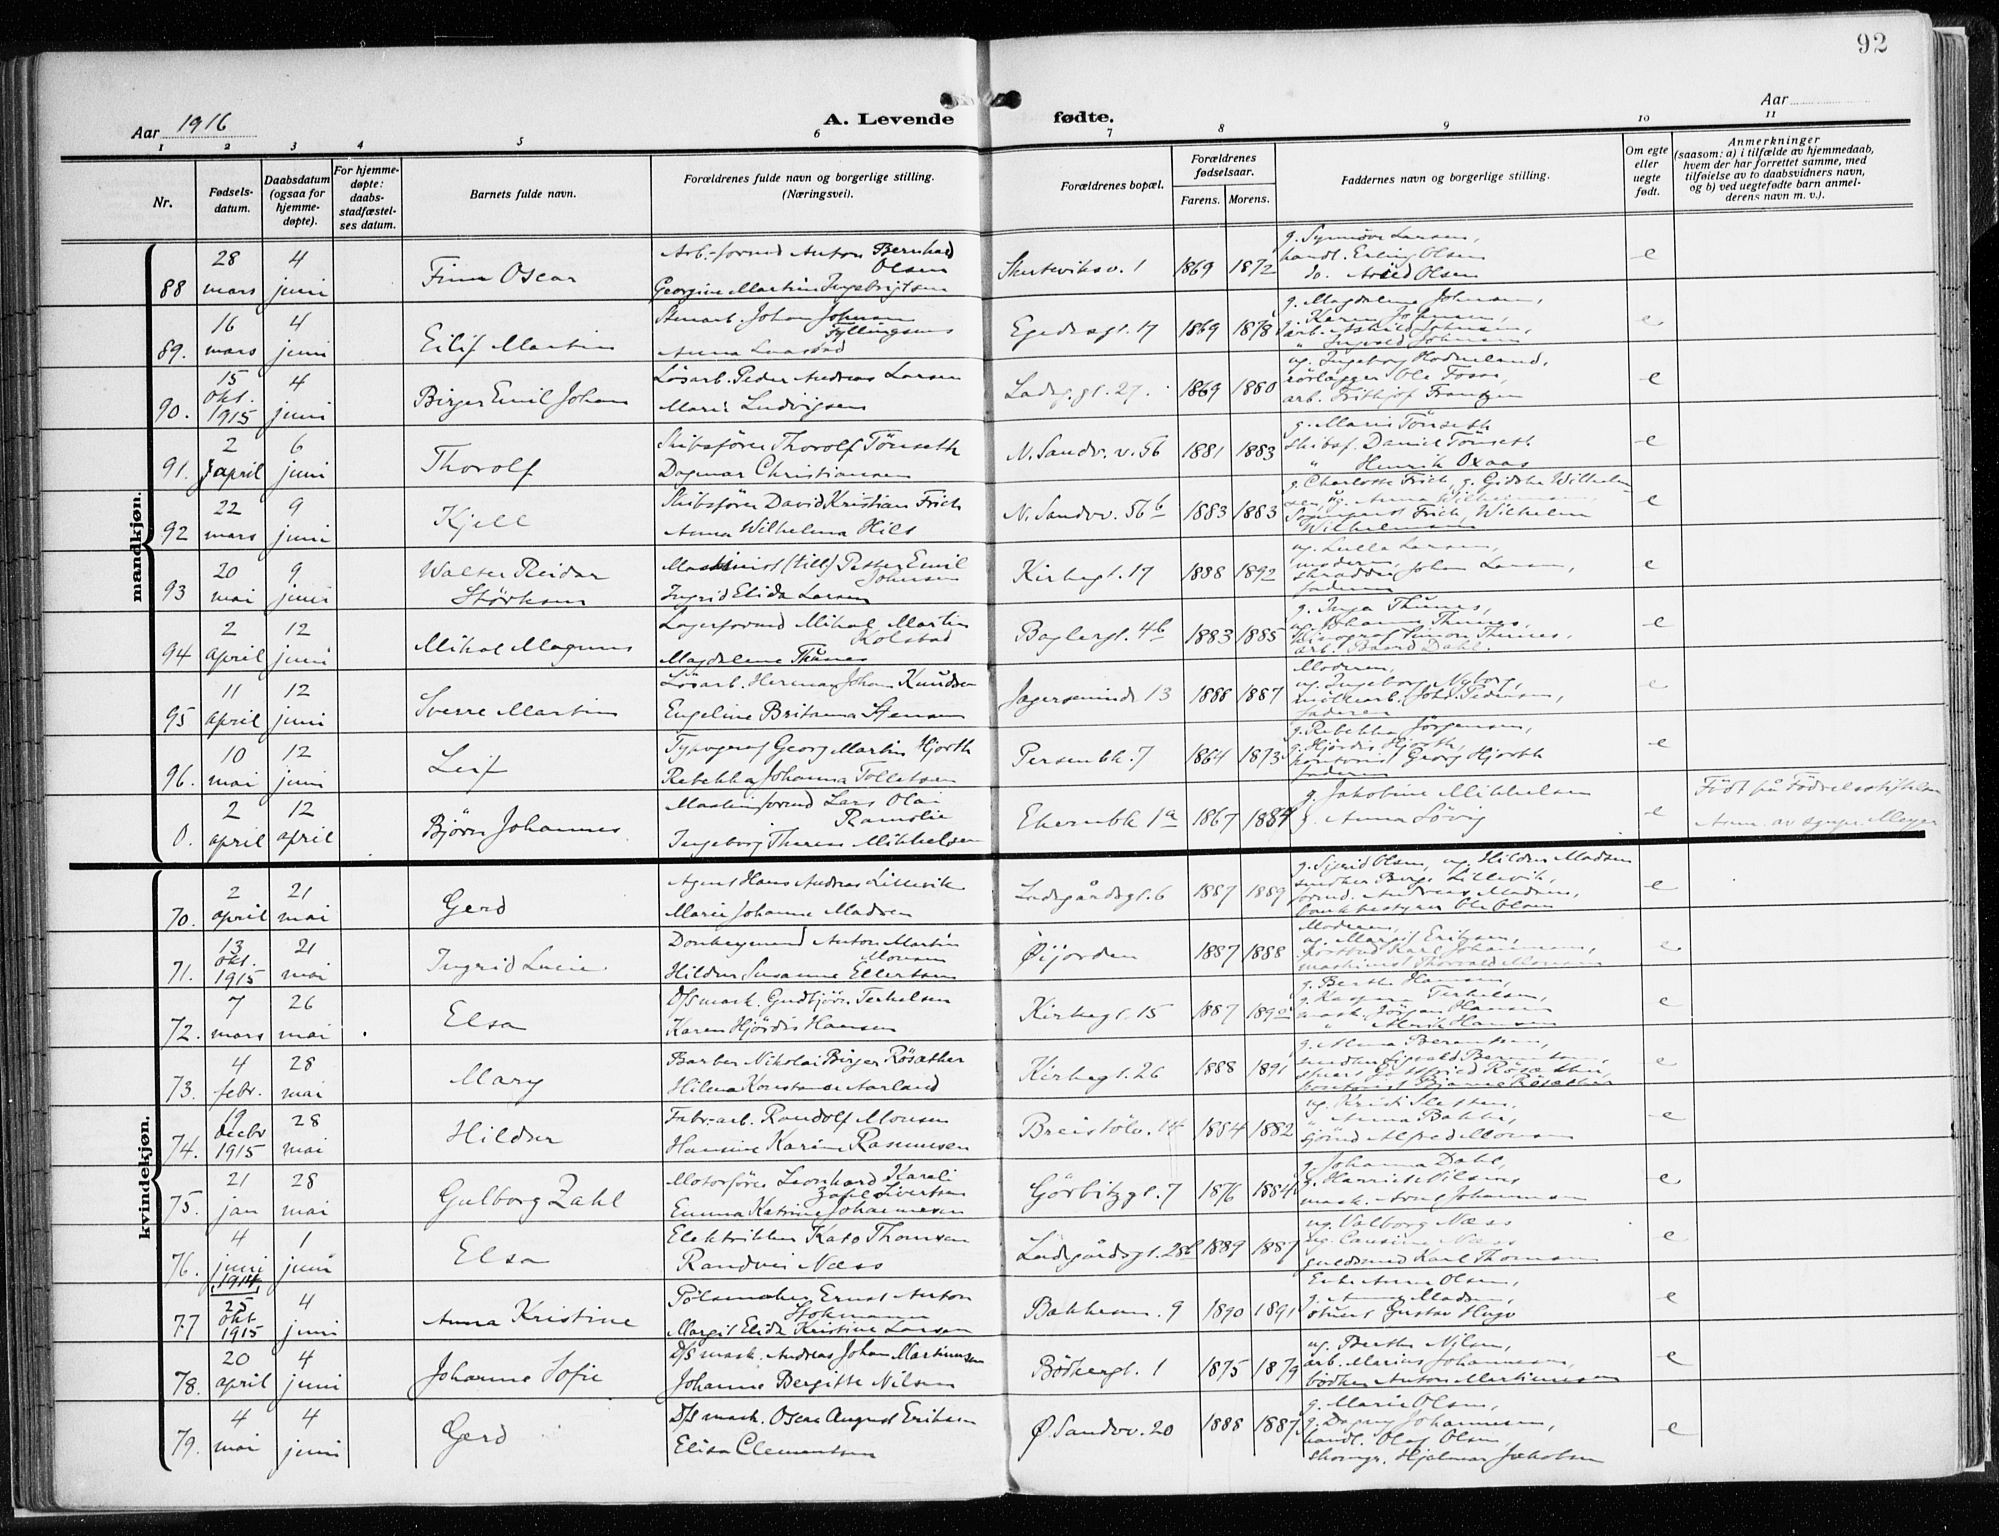 92
Aar 1916
A. Levende fødte.
Aar
1 2 3 4 5 6 7 8 9 10 11
Nr.
Fødsels-
datum.
Daabsdatum
(ogsaa for
hjemme-
døpte).
For hjemme-
døpte:
daabs-
stadfæstel-
ses datum.
Barnets fulde navn.
Forældrenes fulde navn og borgerlige stilling.
(Næringsvei).
Forældrenes bopæl.
Forældrenes
fødselsaar.
Farens. Morens.
Faddernes navn og borgerlige stilling.
Om egte
eller
uegte
født.
Anmerkninger
(saasom: a) i tilfælde av hjemmedaab,
hvem der har forrettet samme, med
tilføielse av to daabsvidners navn,
og b) ved uegtefødte barn anmel-
derens navn m. v.).
mandkjøn.
88
28
mars
4
juni
Finn Oscar
Arb.-formd Anton Bernhard
Olsen
Georgine Martine Ingebrigtsen
Skuteviksv. 1
1869 1872
g. Synnöve Larsen,
handl. Erling Olsen
do. Arvid Olsen
e
89.
16
mars
4
juni
Eilif Martin
Stenarb. Johan Johnsen
Fyllingsnes
Anna
Egedesgt. 17
1869 1878
g. Magdalene Johnsen,
Karen Johnsen,
arb. Johnsen,
" Ingvald Johnsen
e
90.
15
okt.
1915
4
juni
Birger Emil Johan
Lösarb. Peder Andreas Larsen
Marie Ludvigsen
Ladeg.gt. 27.
1869 1880
ug. Ingeborg Hodneland,
rörlægger Ole Fosse,
arb. Frithjof Frantzen
e
91.
2
april
6
juni
Thorolf
Skibsförer Thorolf Tönseth
Dagmar Christiansen
N. Sandv. v. 56
1881 1883
g. Maria Tönseth
Skibsf. Daniel Tönseth
" Henrik Oxaas
e
92
22
mars
9
juni
Kjell
Skibsförer David Kristian Frich
Anna Wilhelmina Hils
N. Sandv. 56 b
1883 1883
g. Charlotte Frich, g. Gidske Wilhelm-
sen, ug. Anna Wilhelmsen
Frich, Wilhelm
Wilhelmsen
e
93
20
mai
9
juni
Walter Reidar
Störksen
Maskinist (till) Petter Emil
Johnsen
Ingrid Elida Larsen
Kirkegt. 17
1888 1892
ug. Lulla Larsen,
moderen,
skrædder Johan Larsen,
faderen
e
94
2
april
12
juni
Mikal Magnus
Lagerformd Mikal Martin
Kolstad
Magdalene Thunes
Baglergt. 4b
1883 1885
g. Inga Thunes,
ug. Johanna Thunes,
Simon Thunes,
arb. Baard Dahl.
e
95
11
april
12
juni
Sverre Martin
Lösarb. Herman Johan Knudsen
Engeline Britanna Stensen
Jægersminde 13
1888 1887
Moderen,
ug. Ingeborg Nyborg,
möllearb. Joh. Pedersen,
faderen
e
96.
10
mai
12
juni
Leif
Typograf Georg Martin Hjorth
Rebekka Johanna Tollefsen
Persenbk. 7
1864 1873
g. Rebekka Jörgensen,
g. Hjördis Hjorth,
kontorist Georg Hjorth
faderen
e
0.
2
april
12
april
Björn Johannes
Maskinformd Lars Olai
Ramslie
Ingeborg Mikkelsen
Ekernbk 1a
1867 1884
g. Jakobine Mikkelsen
g. Anna Lövig
e
Födt på Födselsstiftelsen
Anm. av sognepr. Meyer
kvindekjøn.
70.
2
april
21
mai
Gerd
Agent Hans Andreas Lillevik
Marie Johanne Madsen
Ladegårdsgt. 6
1887 1889
g. Sigrid Olsen, ug. Hildur Madsen
snedker Berge Lillevik,
formd. Andreas Madsen,
bankbestyrer Ole Olsen
e
71.
13
okt.
1915
21
mai
Ingrid Lucie
Donkeymand Anton Martin
Monsen
Hildur Susanne Ellertsen
Øijorden
1887 1888
Moderen,
ug. Margit Eriksen,
postbud Karl Johannessen,
maskinist Thorvald Monsen
e
72.
7
mars
26
mai
Elsa
D/s mask. Gudbjörn Terkelsen
Karen Hjördis Hansen
Kirkegt. 15
1887 1892
g. Berthe Hansen,
g. Kaspara Terkelsen,
mask. Jörgen Hansen
" Hansen
e
73.
4
febr.
28
mai
Mary
Barber Nikolai Birger Rössether
Hilma Konstanse Aarland
Kirkegt. 26
1888 1891
g. Anna Berentsen,
snedker Sigvald Berentsen,
Gottfried Rössether,
kontorist Bjarne Rössether
e
74.
19
decbr
1915
28
mai
Hildur
Fabr.-arb. Randolf Monsen
Hansine Karine Rasmussen
Breistölv. 14
1884 1882
ug. Kristi Sletten,
" Anna Bakke,
sjömd Alfred Monsen
e
75.
21
jan
28
mai
Gulborg Zahl
Motorförer Leonhard Kareli
Zahl Sivertsen
Emma Katrine Johannesen
Görbitzgt. 7
1876 1884
g. Johanna Dahl,
g. Harriet Nilsen,
mask. Arne Johannesen
e
76.
4
juni
1914
1
juni
Elsa
Elektriker Kato Thomsen
Randvei Næss
Ladegårdsgt. 28b
1889 1887
ug. Valborg Næss
ug. Næss
guldsmed Karl Thomsen
e
77
25
okt
1915
4
juni
Anna Kristine
Pölsemaker Ernst Anton
Stokmann
Margit Elida Kristine Larsen
Bakkesm. 9
1890 1891
Enke Anna Olsen,
g. Anna Madsen,
stuert Gustav Hugo
e
78.
20
april
4
juni
Johanne Sofie
D/s mask. Andreas Johan Martinusen
Johanne Bergitte Nilsen
Bödkergt. 1
1875 1879
ug. Berthe Nilsen,
arb. Marius Johannesen,
bödker Anton Martinusen
e
79.
4
mai
4
juni
Gerd
D/s mask. Oscar August Eriksen
Elisa Clementsen
Ø Sandvv. 20
1888 1887
g. Marie Olsen,
g. Dagny Johannesen,
handl. Olaf Olsen,
skomgr. Hjelmar Jakobsen
e